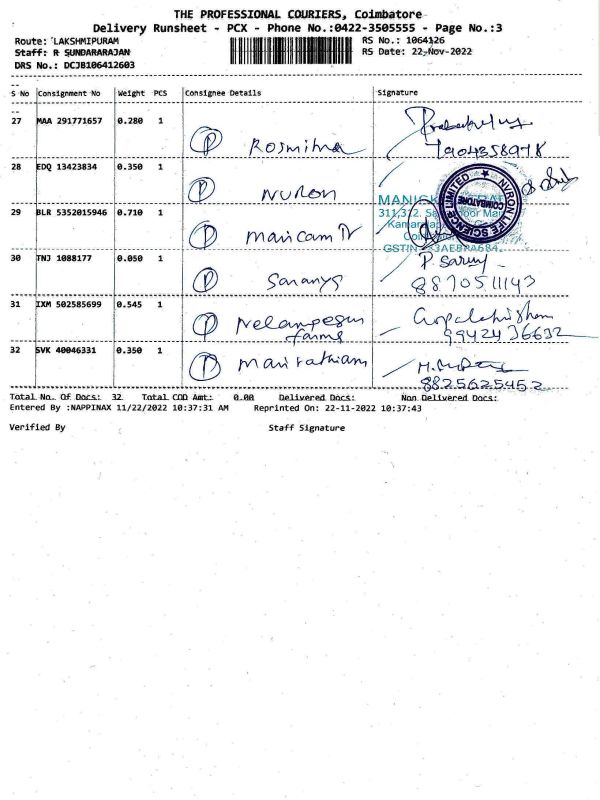 THE PROFESSIONAL COURIERS, Coimbatore
Delivery Runsheet - PCX - Phone No.:0422-3505555 - Page No.:3
Route: LAKSHMIPURAM RS No.: 1064126
Staff: R SUNDARARAJAN RS Date: 22-Nov-2022
DRS No.: DCJB106412603
S No Consignment No Weight PCS Consignee Details Signature
27 MAA 291771657 0.280 1
P Rosmitha
28 EDQ 13423834 0.350 1
P Nuron
NVRON LIFE SCIENCE LIMITED
COIMBATORE
29 BLR 5352015946 0.710 1
P Manicam Tr
GSTIN
30 TNJ 1088177 0.050 1
P Saranya
P. Sarany
8870511143
31 IXM 502585699 0.545 1
P Nelampesun farms
Gopalakrishnan
9942436632
32 SVK 40046331 0.350 1
P
8825625452
Total No. Of Docs: 32 Total COD Amt: 0.00 Delivered Docs: Non Delivered Docs:
Entered By :NAPPINAX 11/22/2022 10:37:31 AM Reprinted On: 22-11-2022 10:37:43
Verified By Staff Signature